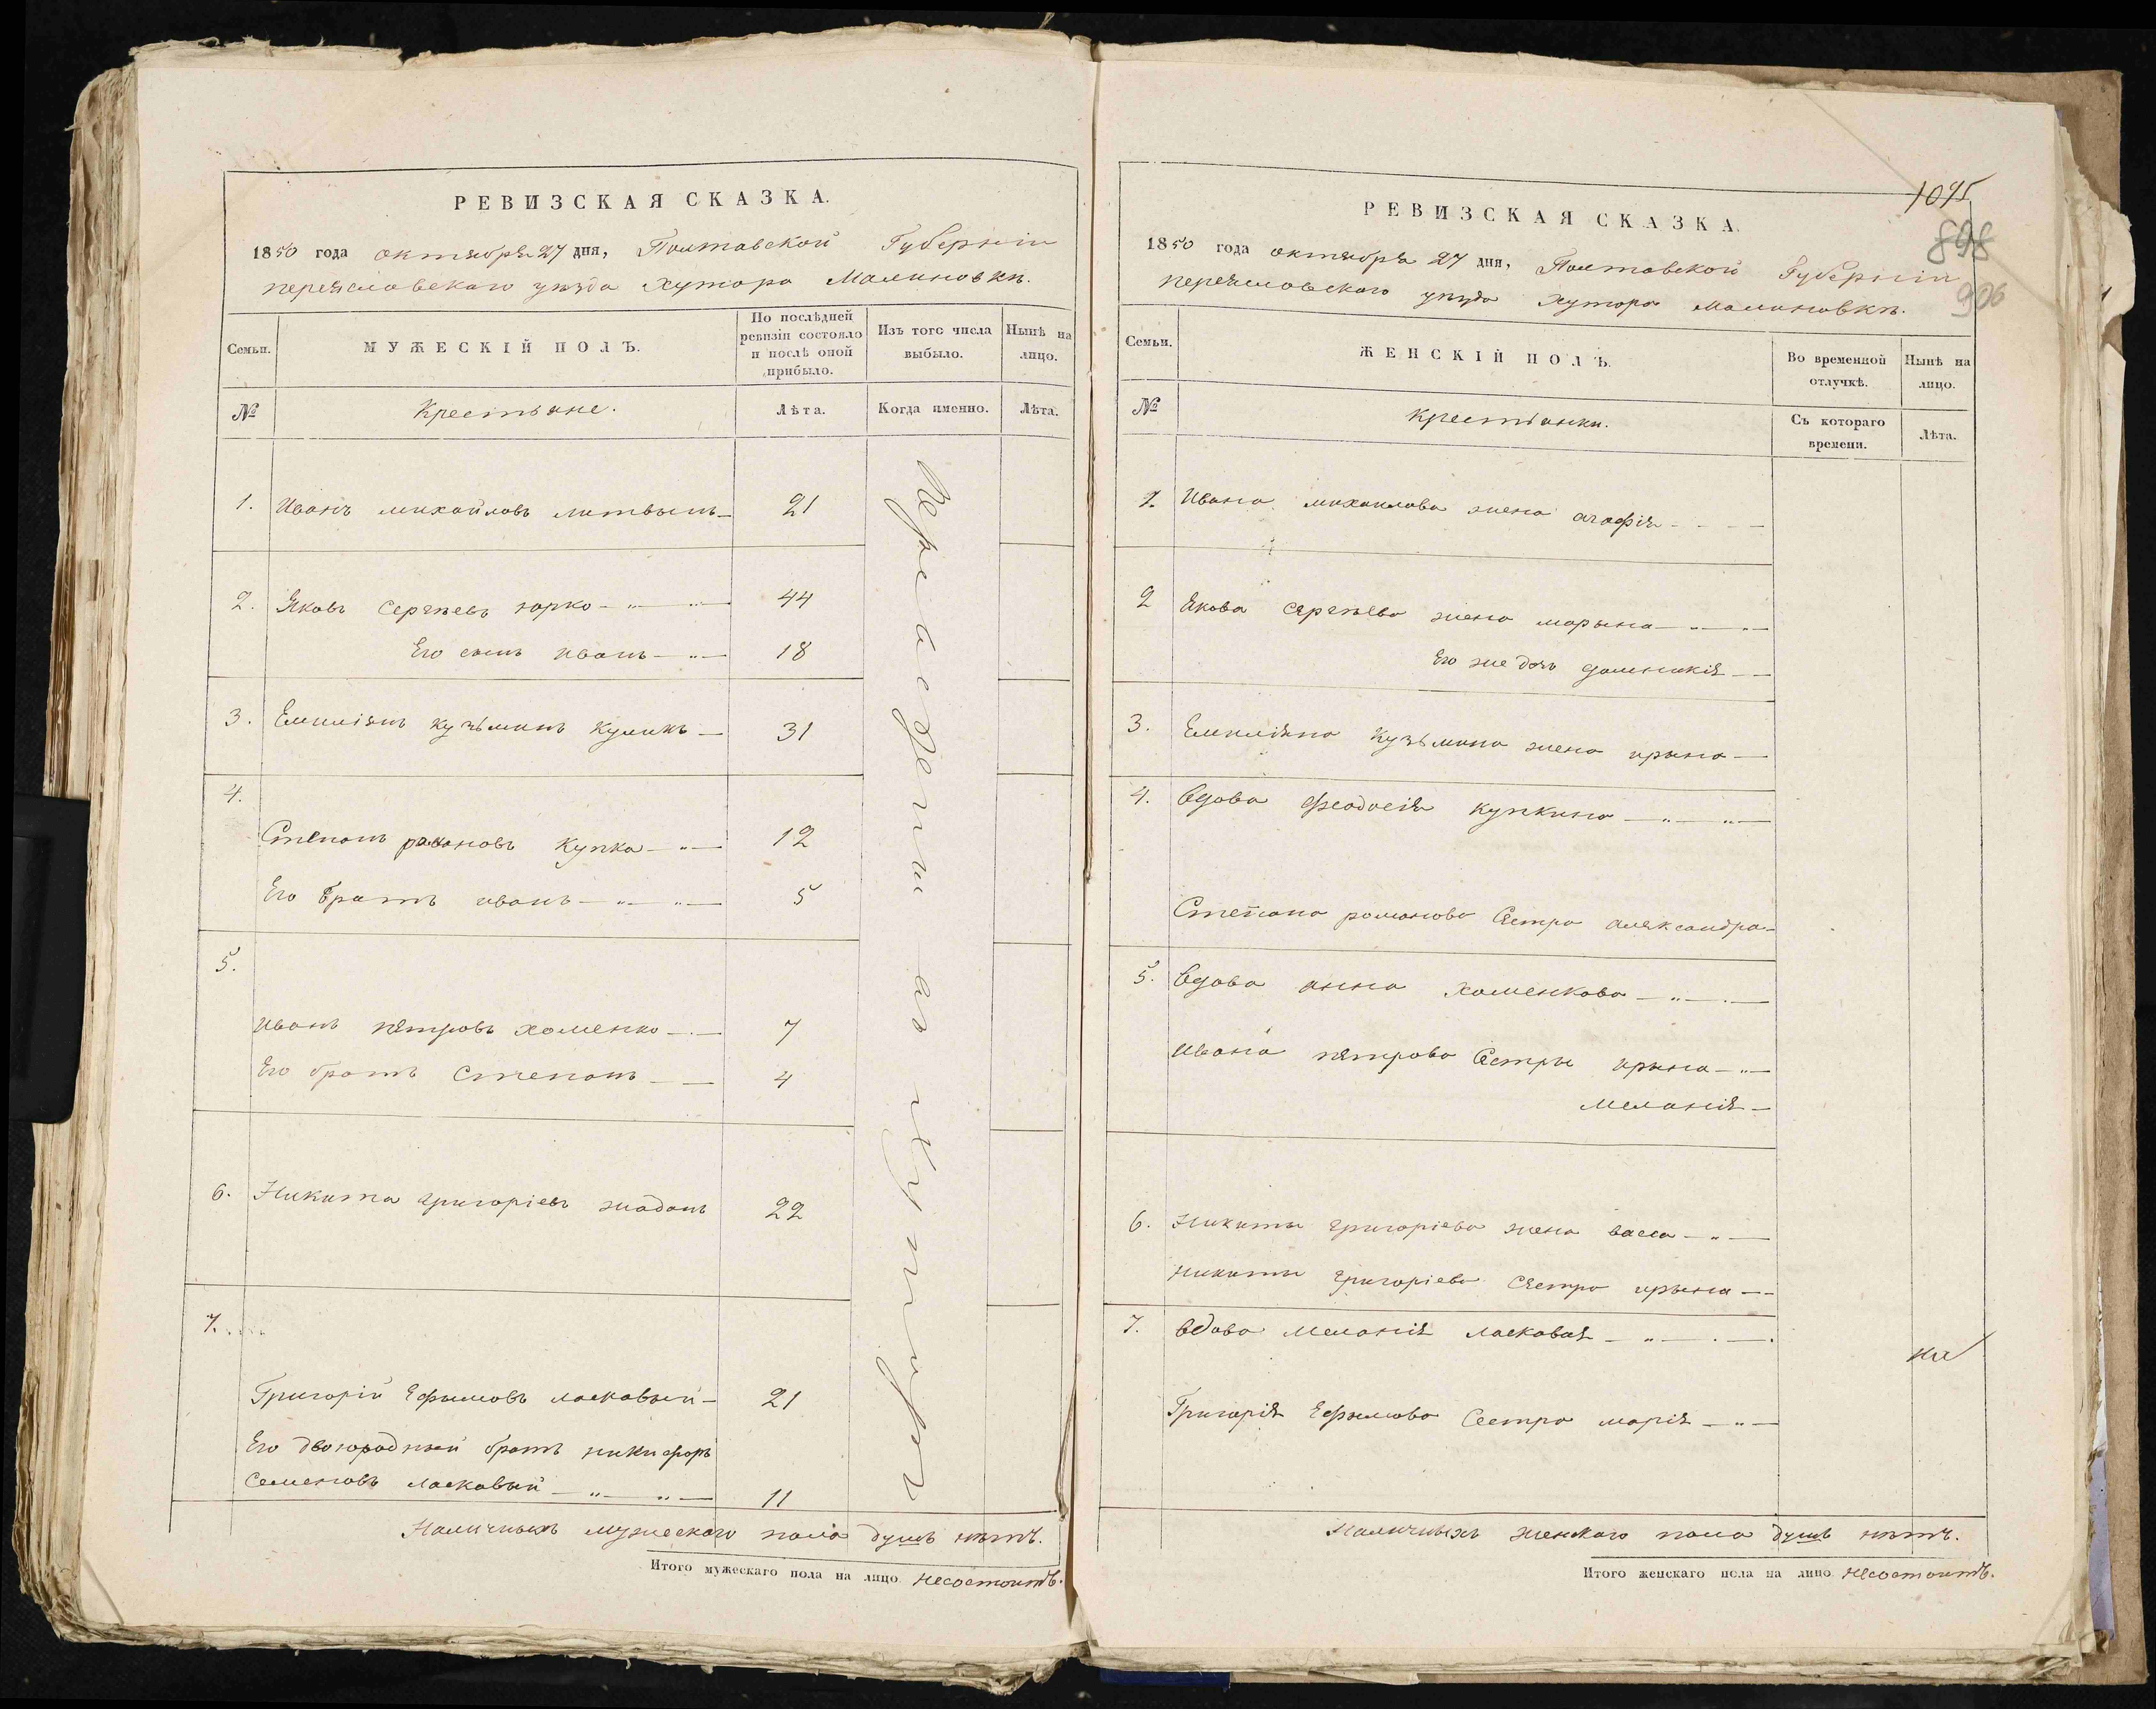 РЕВИЗСКАЯ СКАЗКА.
1850 года октября 27 дня, Полтавской Губерніи
переясловского уѣзда Хутора Малиновки.
Семьи.
МУЖЕСКІЙ ПОЛЪ.
По послѣдней
ревизіи состояло
и послѣ оной
прибыло.
Изъ того числа
выбыло.
Нынѣ на
лицо.
№
Крестьяне.
Лѣта.
Когда именно.
Лѣта.
1. Иванъ михайловъ литвынъ 21
2. Яковъ Сергѣевъ юрко 44
Его сынъ иванъ 18
3. Емиліянъ кузьминъ куликъ 31
4.
Степанъ романовъ Купка 12
Его братъ иванъ 5
5.
иванъ пятровъ хоменко 7
Его братъ Степанъ 4
6. Никита григоріевъ жаданъ 22
7.
Григорій Ефымовъ ласкавый 21
Его двоюродный братъ никифоръ
Семеновъ ласкавый 11
Наличныхъ мужескаго пола душъ нѣтъ.
Итого мужескаго пола на лицо несостоитъ.
1095
898
906
РЕВИЗСКАЯ СКАЗКА.
1850 года октября 27 дня, Полтавской Губерніи
переясловского уѣзда хутора малиновки.
Семьи.
ЖЕНСКІЙ ПОЛЪ.
Во временной
отлучкѣ.
Нынѣ на
лицо.
№
Крестьянки.
Съ котораго
времени.
Лѣта.
1. Ивана михаилова жена агафія
2 Якова сергѣева жена марына
Его же дочь домникія
3. Емиліяна Кузьмина жена ирына
4. Вдова феодосія купкина
Степана романова Сестра александра
5. Вдова анна хоменкова
Ивана пятрова Сестры ирына
меланія
6. Никиты григоріева жена васса
никиты григоріева Сестра ирына
7. вдова меланія ласкавая
Григорія Ефымова Сестра марія
Наличныхъ женскаго пола душъ нѣтъ.
Итого женскаго пола на лицо несостоитъ.